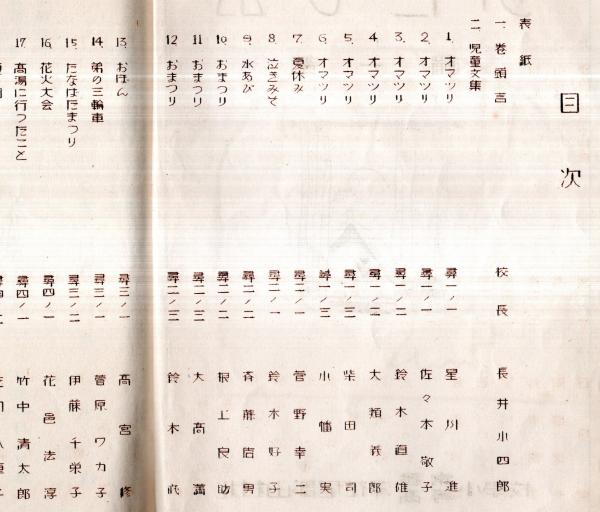 目次
表紙
一、巻頭言 校長 長井小四郎
二、児童文集
1. オマツリ 尋一ノ一 星川進
2. オマツリ 尋一ノ一 佐々木敬子
3. オマツリ 尋一ノ二 鈴木直雄
4. オマツリ 尋一ノ二 大須義郎
5. オマツリ 尋一ノ三 柴田司
6. オマツリ 尋一ノ三 小幡実
7. 夏休み 尋二ノ一 菅野幸二
8. 泣きみそ 尋二ノ一 鈴木好子
9. 水あび 尋二ノ二 斉藤信男
10. おまつり 尋二ノ二 根上良助
11. おまつり 尋二ノ三 大高満
12. おまつり 尋二ノ三 鈴木
13. おぼん 尋三ノ一 高宮修
14. 弟の三輪車 尋三ノ一 菅原ワカ子
15. たなばたまつり 尋三ノ二 伊藤千栄子
16. 花火大会 尋四ノ一 花邑法淳
17. 高湯に行ったこと 尋四ノ一 竹中清太郎